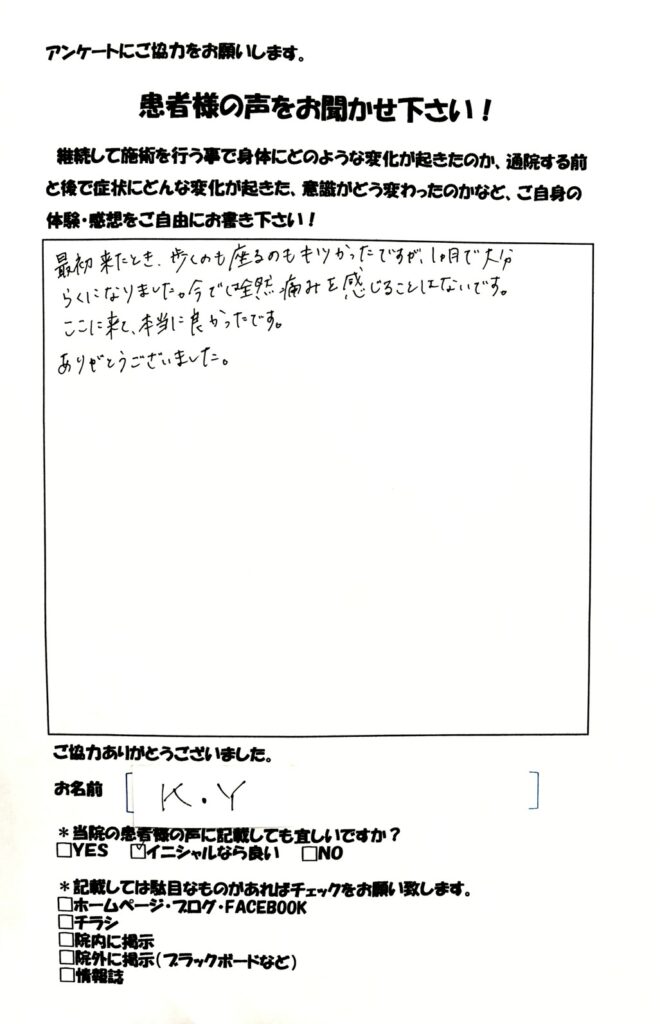 アンケートにご協力をお願いします。
患者様の声をお聞かせ下さい！
継続して施術を行う事で身体にどのような変化が起きたのか、通院する前
と後で症状にどんな変化が起きた、意識がどう変わったのかなど、ご自身の
体験・感想をご自由にお書き下さい！
最初来たとき、歩くのも座るのもキツかったですが、1ヵ月で大分
らくになりました。今では全然痛みを感じることはないです。
ここに来て、本当に良かったです。
ありがとうございました。
ご協力ありがとうございました。
お名前 [ K.Y ]
＊当院の患者様の声に記載しても宜しいですか？
□YES ☑イニシャルなら良い □NO
＊記載しては駄目なものがあればチェックをお願い致します。
□ホームページ・ブログ・FACEBOOK
□チラシ
□院内に掲示
□院外に掲示（ブラックボードなど）
□情報誌